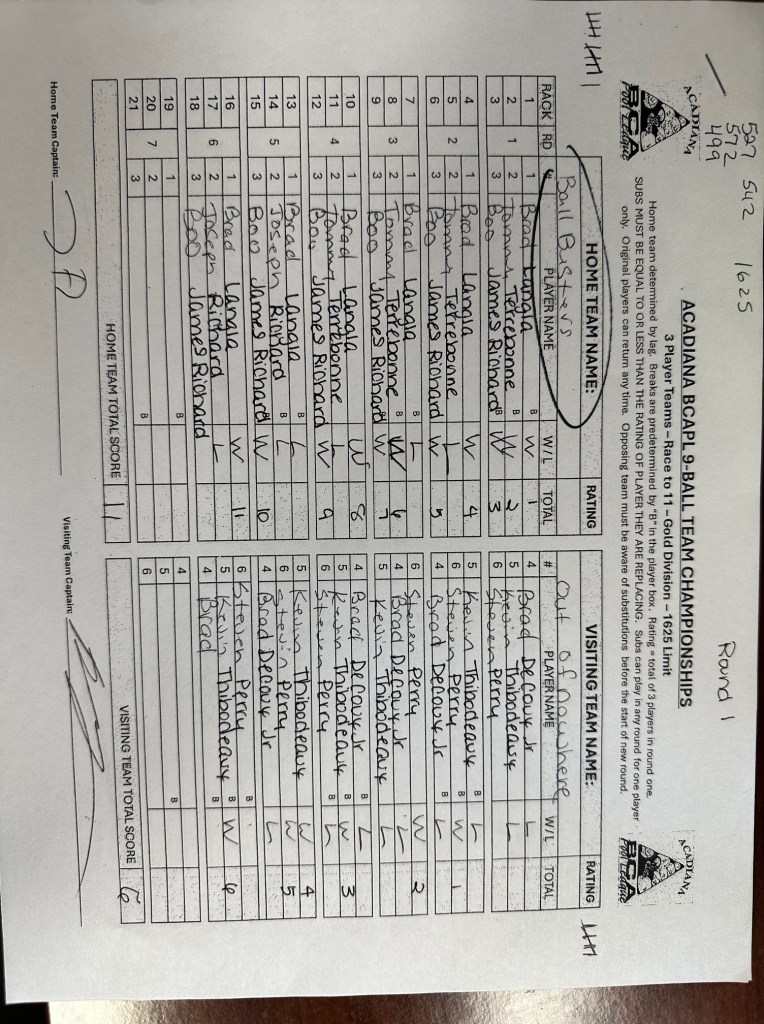 527 542 1625
572
499
Round 1
ACADIANA
BCA
Pool League
ACADIANA BCAPL 9-BALL TEAM CHAMPIONSHIPS
3 Player Teams – Race to 11 – Gold Division – 1625 Limit
ACADIANA
BCA
Pool League
Home team determined by lag. Breaks are predetermined by "B" in the player box. Rating = total of 3 players in round one.
SUBS MUST BE EQUAL TO OR LESS THAN THE RATING OF PLAYER THEY ARE REPLACING. Subs can play in any round for one player
only. Original players can return any time. Opposing team must be aware of substitutions before the start of new round.
HOME TEAM NAME: RATING VISITING TEAM NAME: RATING
Ball Busters Out of nowhere
RACK RD # PLAYER NAME W/L TOTAL # PLAYER NAME W/L TOTAL
1 1 Brad Langla B W 1 4 Brad Decoux Jr L
2 1 2 Tommy Terrebonne B W 2 5 Kevin Thibodeaux L
3 3 Boo James Richard B W 3 6 Steven Perry
4 1 Brad Langla W 4 5 Kevin Thibodeaux B L
5 2 2 Tommy Terrebonne L 6 Steven Perry B W 1
6 3 Boo James Richard W 5 4 Brad Decoux Jr B L
7 1 Brad Langla B L 6 Steven Perry W 2
8 3 2 Tommy Terrebonne B W 6 4 Brad Decoux Jr L
9 3 Boo James Richard B W 7 5 Kevin Thibodeaux L
10 1 Brad Langla W 8 4 Brad Decoux Jr B L
11 4 2 Tommy Terrebonne L 5 Kevin Thibodeaux B W 3
12 3 Boo James Richard W 9 6 Steven Perry B L
13 1 Brad Langla B L 5 Kevin Thibodeaux W 4
14 5 2 Joseph Richard B L 6 Steven Perry W 5
15 3 Boo James Richard B W 10 4 Brad Decoux Jr L
16 1 Brad Langla W 11 6 Steven Perry B
17 6 2 Joseph Richard L 5 Kevin Thibodeaux B W 6
18 3 Boo James Richard 4 Brad B
19 1 B 4 B
20 7 2 5
21 3 B 6
HOME TEAM TOTAL SCORE 11 VISITING TEAM TOTAL SCORE 6
Home Team Captain: Visiting Team Captain: